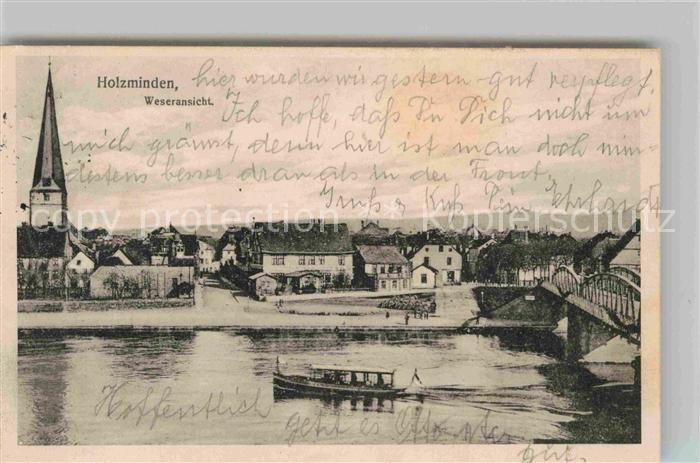 Holzminden,
Weseransicht.
hier wurden wir gestern gut verpflegt.
Ich hoffe, daß Du Dich nicht um
mich grämst, denn hier ist man doch min-
destens besser dran als in der Front.
Gruß & Kuß Dein
copy protection Kopierschutz
Hoffentlich
geht es Otto
gut.